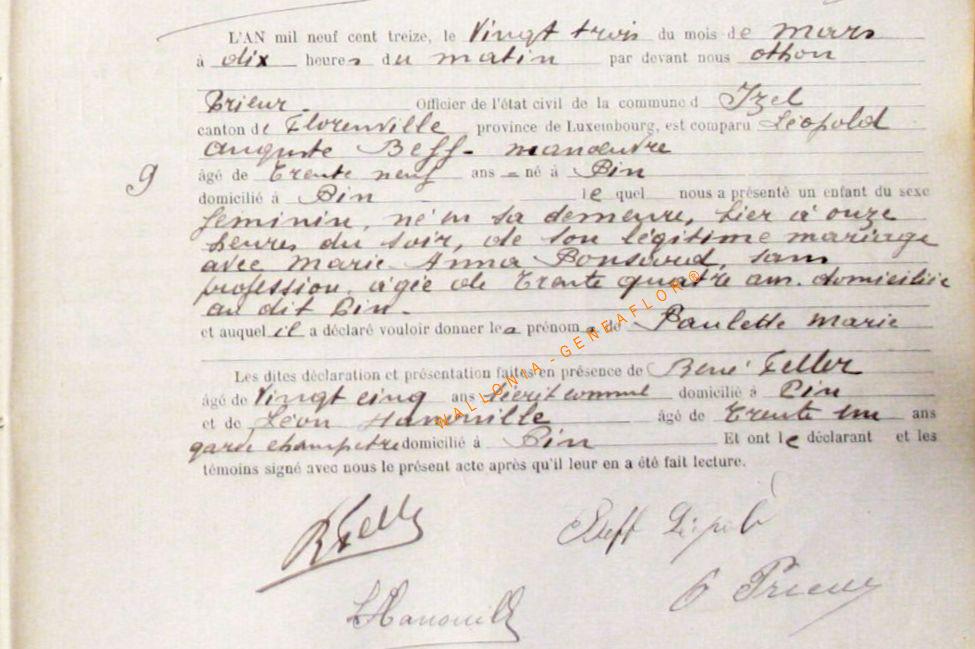 L'AN mil neuf cent treize, le Vingt trois du mois de mars
à dix heures du matin par devant nous Othon
Prieur. Officier de l'état civil de la commune d Izel
canton de Florenville province de Luxembourg, est comparu Léopold
Auguste Beff - manœuvre
9
âgé de Trente neuf ans - né à Pin
domicilié à Pin le quel nous a présenté un enfant du sexe
féminin, né en sa demeure, hier à onze
heures du soir, de son légitime mariage
avec Marie Anna Ponsard, sans
profession, agée de Trente quatre ans. domiciliée
au dit Pin.
et auquel il a déclaré vouloir donner le a prénom a de Paulette Marie
Les dites déclaration et présentation faites en présence de René Feller
âgé de Vingt cinq ans domicilié à Pin
et de Léon Hanouille âgé de Trente un ans
garde champetre domicilié à Pin Et ont le déclarant et les
témoins signé avec nous le présent acte après qu'il leur en a été fait lecture.
WALLONIA-GENEAFLOR®
R Feller
Beff Léopold
L Hanouille
O Prieur